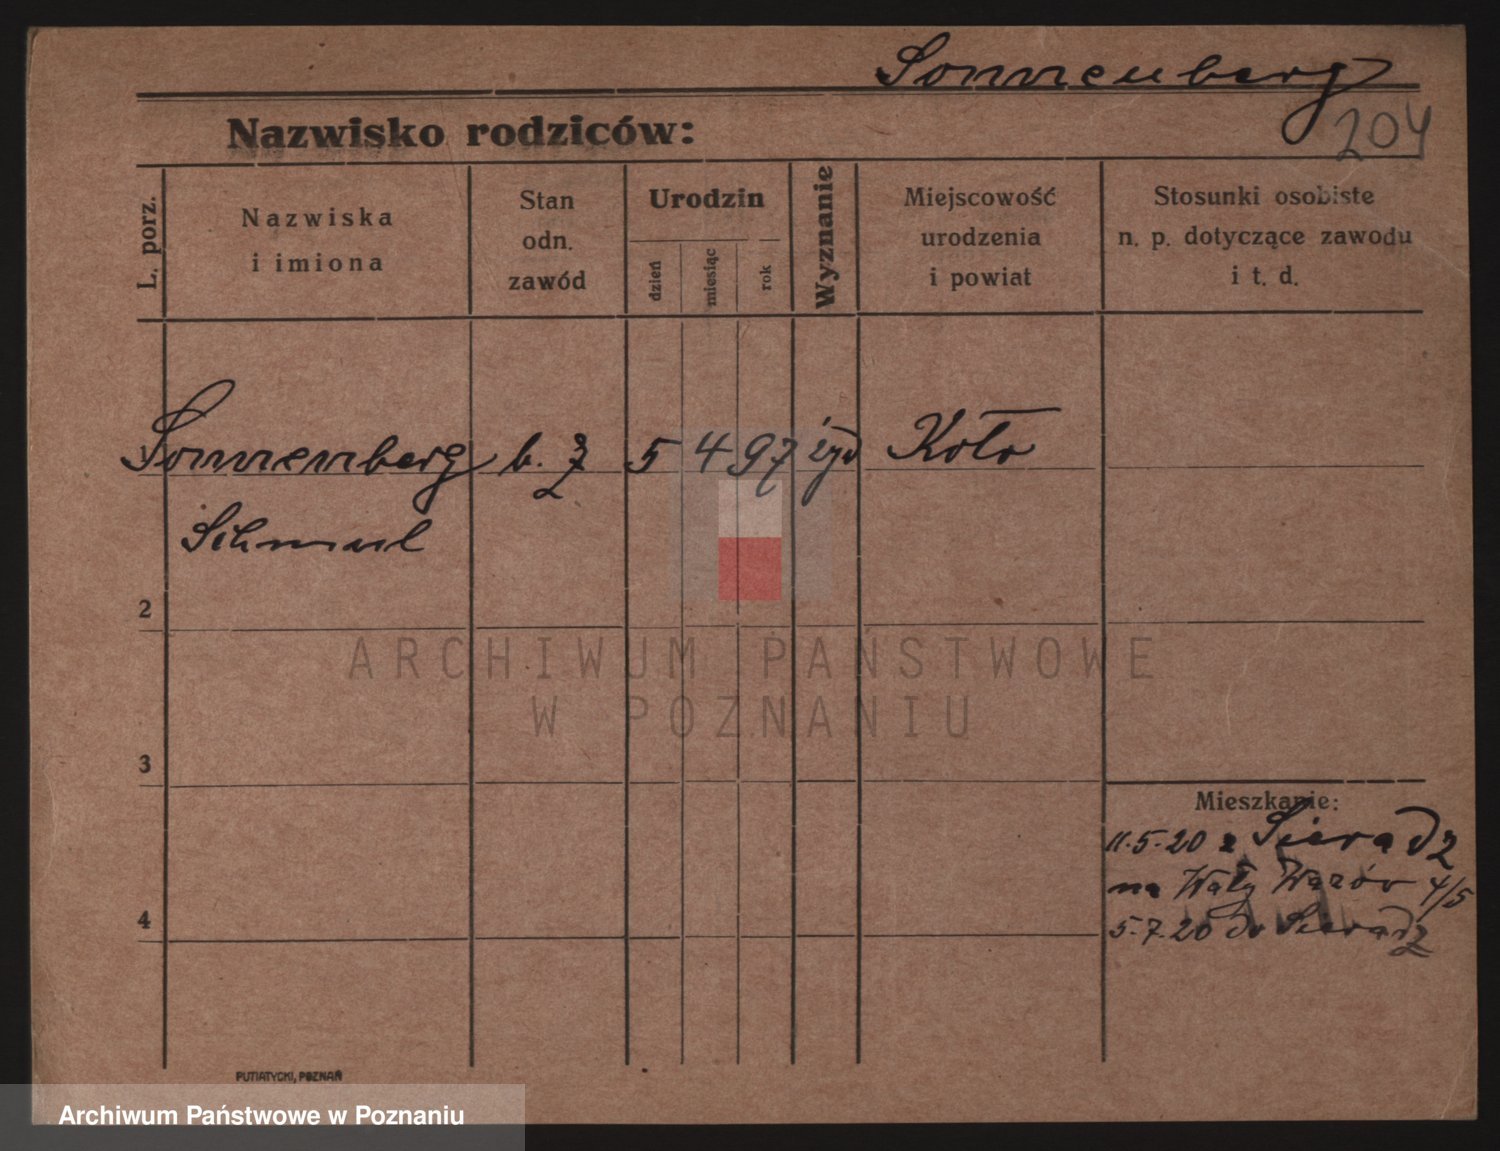 Sonnenberg
204
Nazwisko rodziców:
L. porz.
Nazwiska
i imiona
Stan
odn.
zawód
Urodzin
dzień
miesiąc
rok
Wyznanie
Miejscowość
urodzenia
i powiat
Stosunki osobiste
n. p. dotyczące zawodu
i t. d.
Sonnenberg b. z 5 4 97 żyd Koło
Schmul
2
ARCHIWUM PAŃSTWOWE
W POZNANIU
3
Mieszkanie:
11.5.20 z Sieradz
na Wały Wazów 4/5
4
5.7.20 do Sieradz
PUTIATYCKI, POZNAŃ
Archiwum Państwowe w Poznaniu